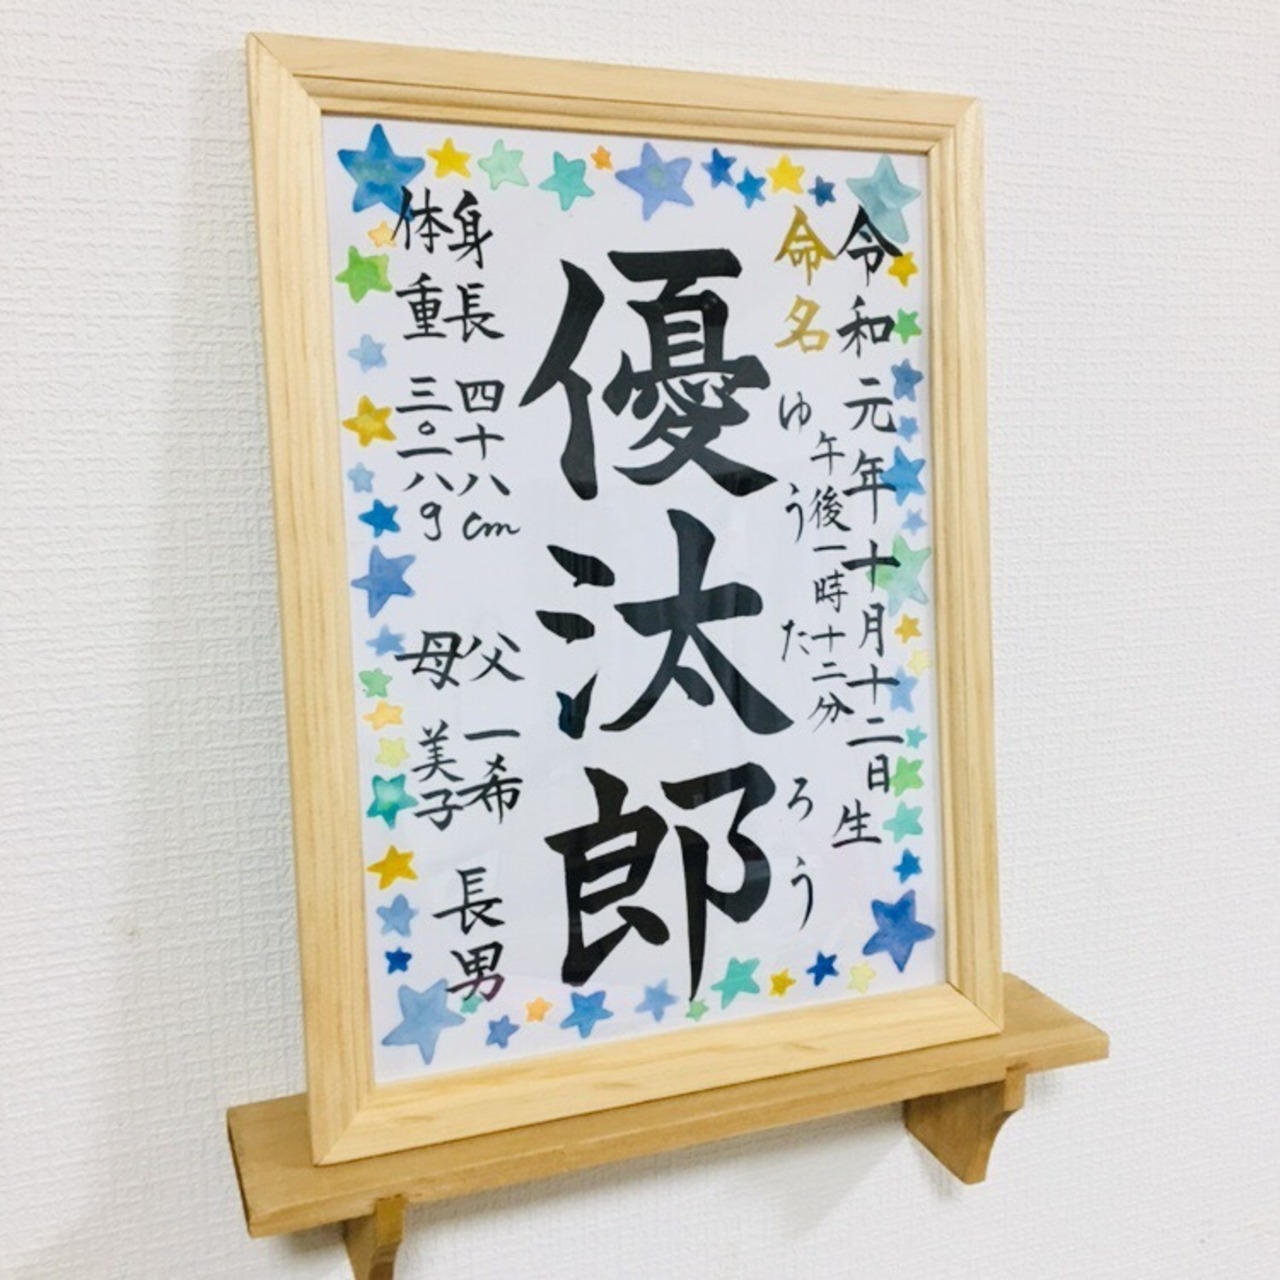 令和元年十月十二日生
午後一時十二分
命名
ゆうたろう
優汰郎
身長 四十八cm
体重 三〇一八g
父 一希
母 美子
長男